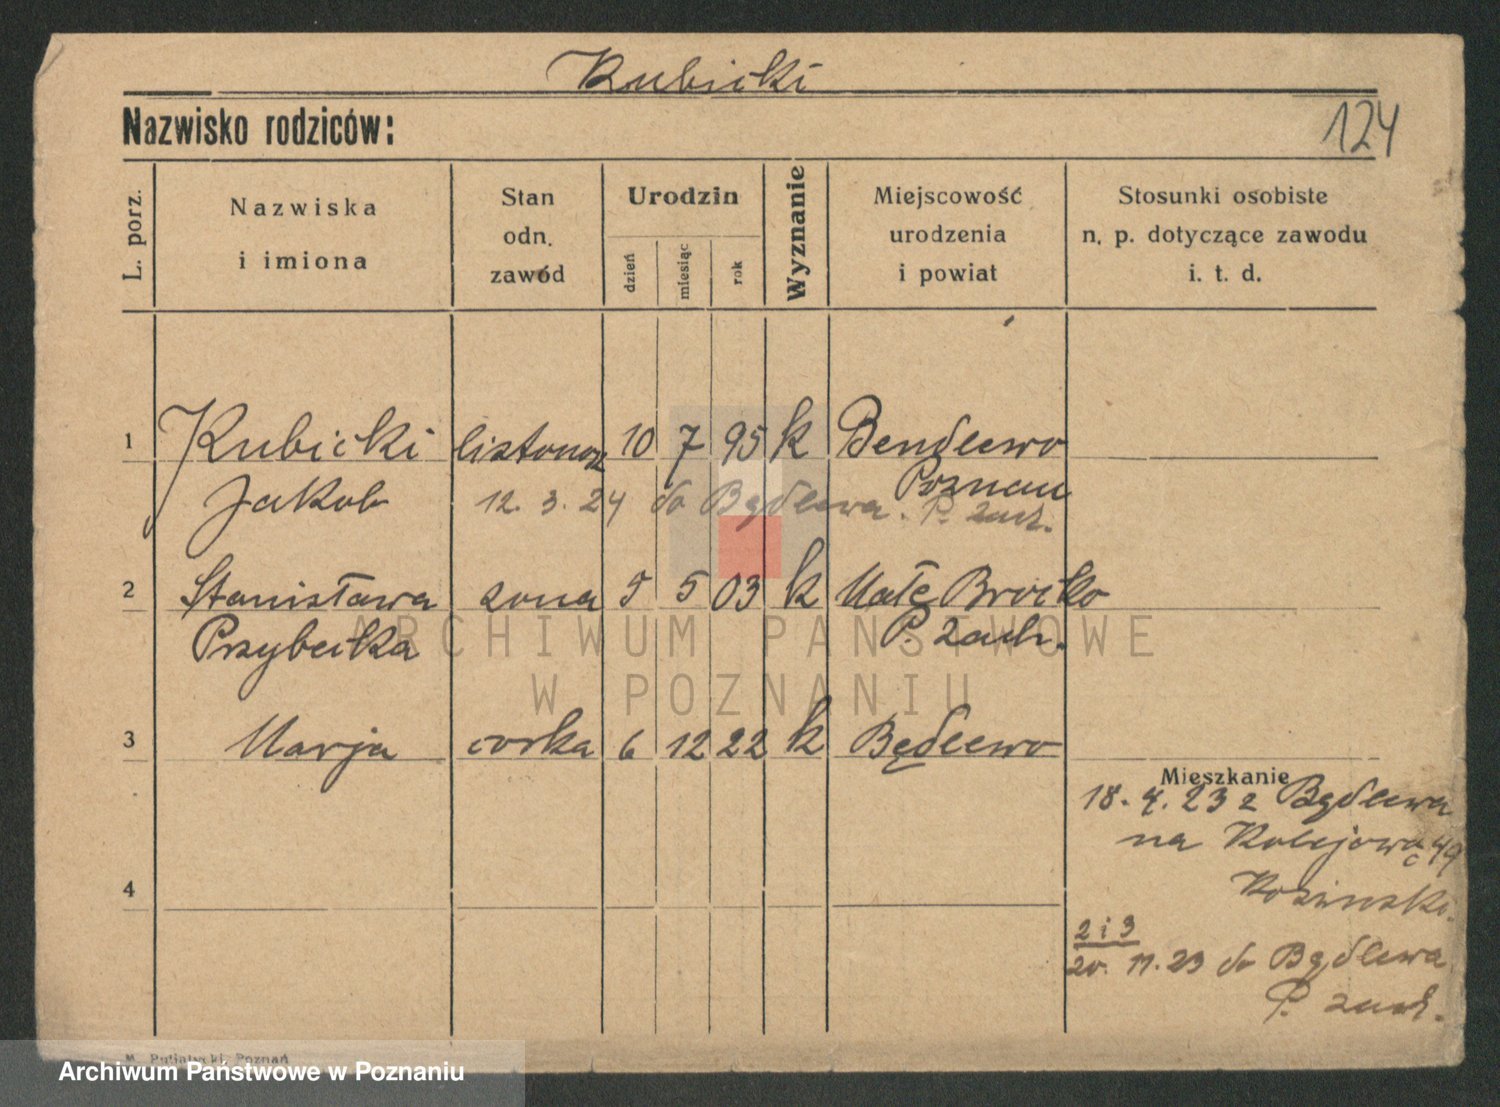 Kubicki
Nazwisko rodziców:
124
L. porz.
Nazwiska
i imiona
Stan
odn.
zawód
Urodzin
dzień
miesiąc
rok
Wyznanie
Miejscowość
urodzenia
i powiat
Stosunki osobiste
n. p. dotyczące zawodu
i. t. d.
1 Kubicki listonosz 10 7 95 k Bendlewo
Jakob Poznań
12. 3. 24 do Bądlewa. P. zach.
2 Stanisława zona 5 5 03 k Małe
P. zach.
3 Marja corka 6 12 22 k Będlewo
Mieszkanie
18. 4. 23 z Bądlewa
na Kolejową 49
4
2 i 3
20. 11. 23 do Bądlewa
P. zach.
ARCHIWUM PAŃSTWOWE
W POZNANIU
Archiwum Państwowe w Poznaniu